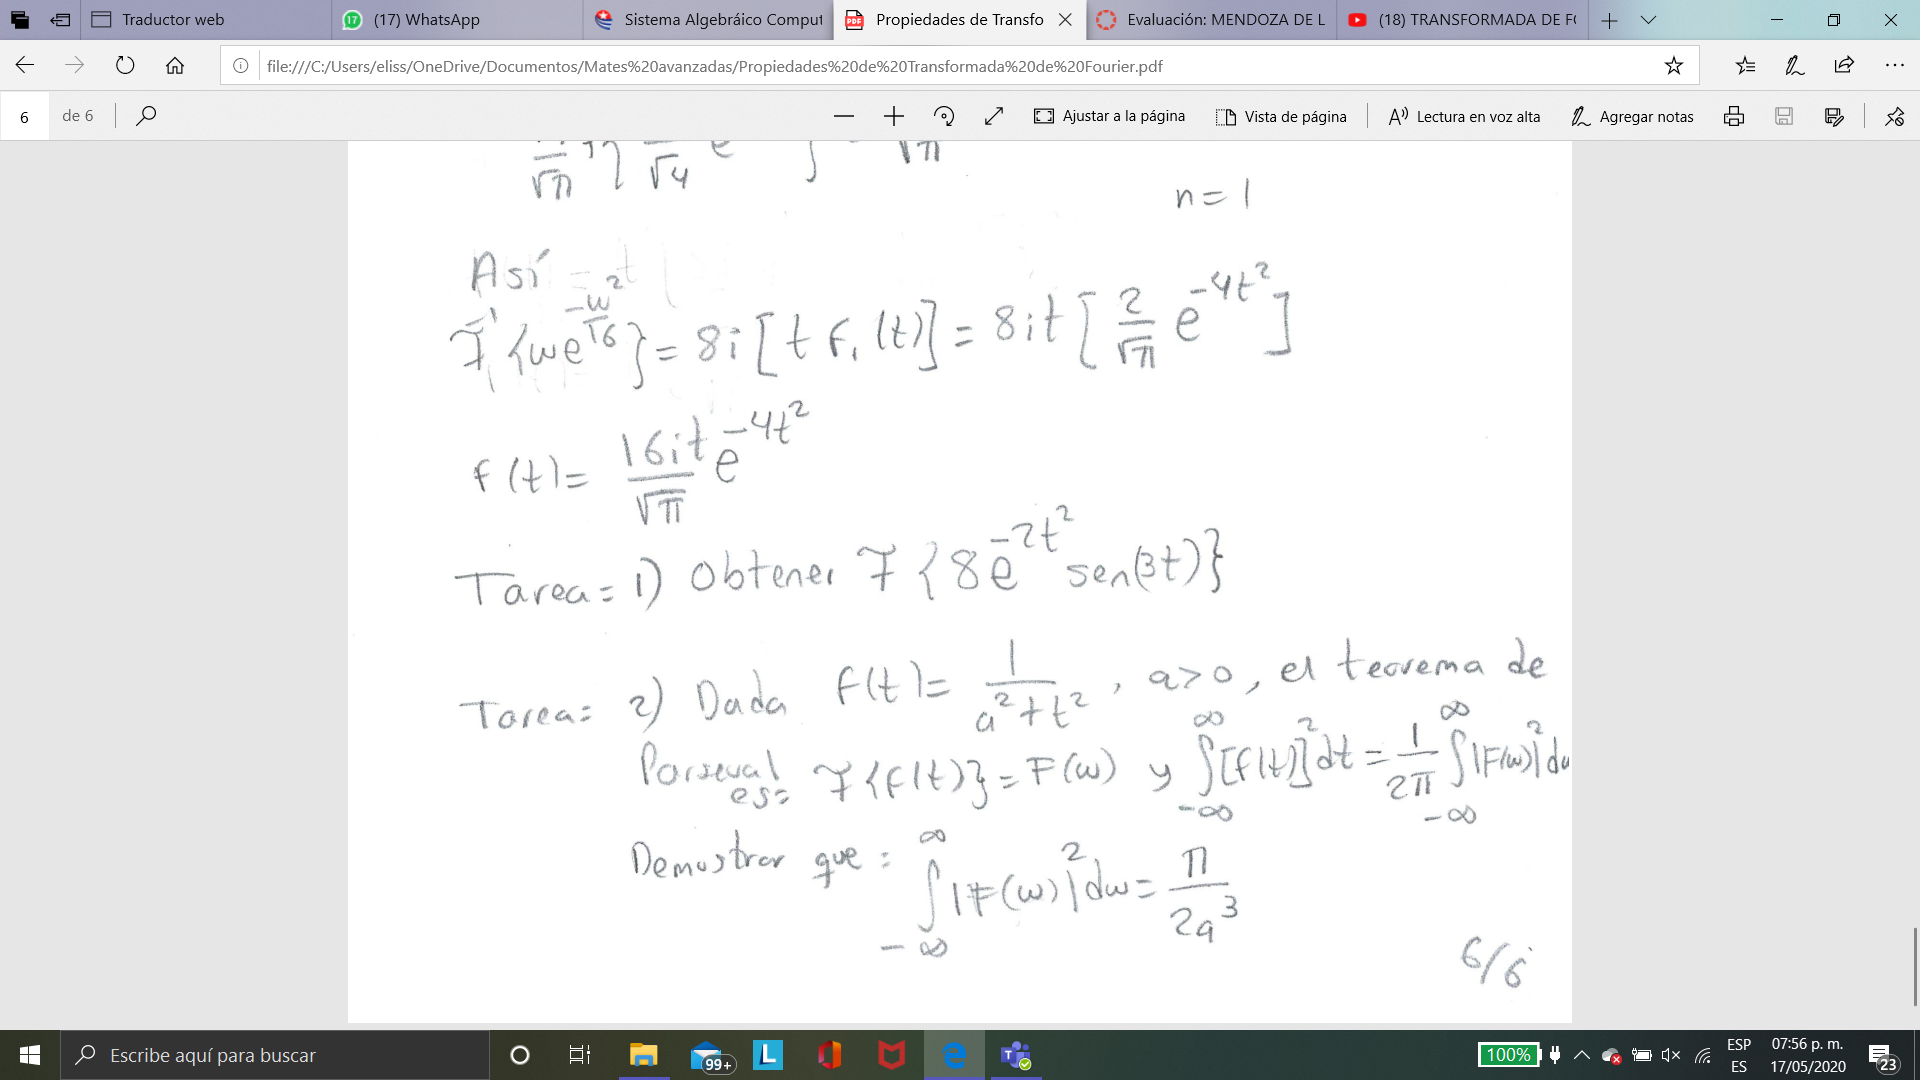 Traductor web
(17) WhatsApp
Sistema Algebráico Comput
Propiedades de Transfo
Evaluación: MENDOZA DE L
(18) TRANSFORMADA DE FO
file:///C:/Users/eliss/OneDrive/Documentos/Mates%20avanzadas/Propiedades%20de%20Transformada%20de%20Fourier.pdf
6 de 6
Ajustar a la página
Vista de página
Lectura en voz alta
Agregar notas
√π √4 e √π
n = 1
Así
F⁻¹{we^(-w²/16)} = 8i[t f₁(t)] = 8it[2/√π e^(-4t²)]
f(t) = 16it/√π e^(-4t²)
Tarea = 1) Obtener F{8e^(-2t²) sen(3t)}
Tarea = 2) Dada f(t) = 1/(a²+t²), a>0, el teorema de
Parseval es = F{f(t)} = F(w) y ∫_(-∞)^∞ [f(t)]² dt = 1/2π ∫_(-∞)^∞ |F(w)|² dw
Demostrar que : ∫_(-∞)^∞ |F(w)|² dw = π/2a³
6/6
Escribe aquí para buscar
99+
100%
ESP
ES
07:56 p. m.
17/05/2020
23